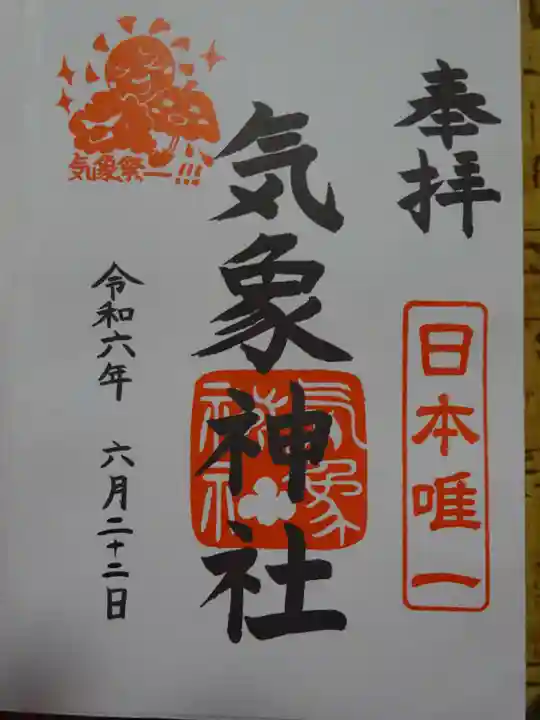 奉拝
日本唯一
気象神社
気象神社
気象祭ー!!!
令和六年 六月二十二日